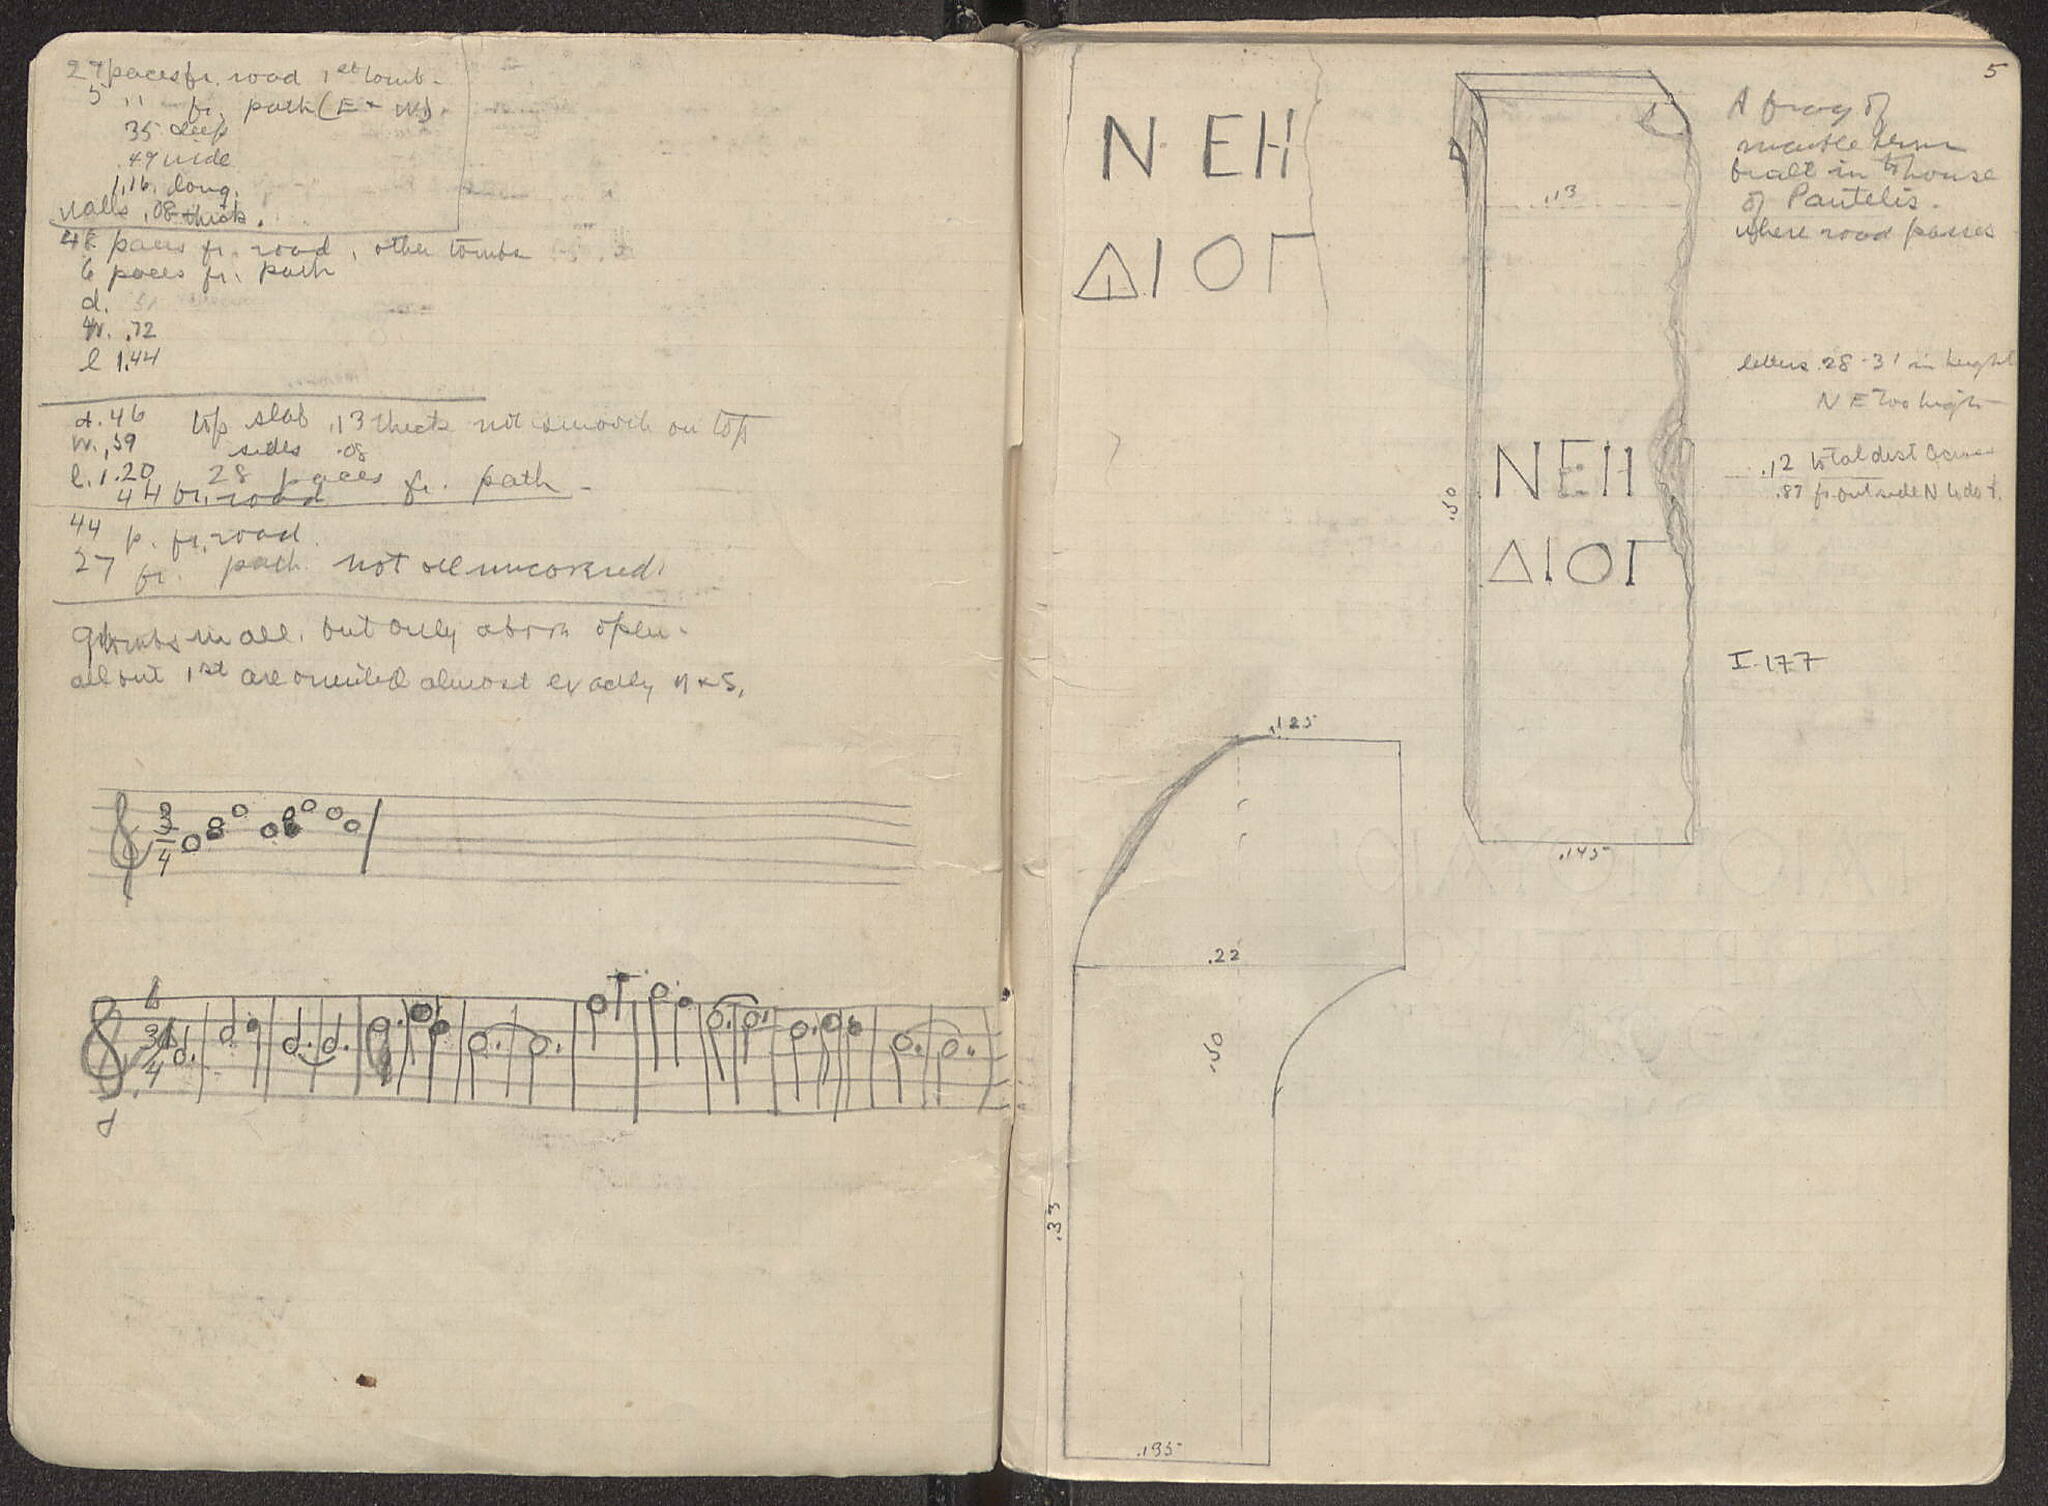 27 paces fr. road 1st tomb.
5 " fr. path (E & W)
35 deep
.49 wide
1.16. long.
walls .08 thick.
48 paces fr. road, other tombs
6 paces fr. path
d.
w. .72
l 1.44
d. 46 top slab .13 thick not smooth on top
w. .59 sides .08
l. 1.20 28 paces fr. path
44 fr. road
44 p. fr. road
27 fr. path not all uncovered.
9 tombs in all, but only above open.
all but 1st are oriented almost exactly N & S.
3
4
3
4
5
Ν ΕΗ
ΔΙΟΓ
A frag of
marble term
built in to house
of Pantelis.
where road passes
.13
letters .28-31 in height
N E too high
.12 total dist across
.87 fr outside N to do
.50
ΝΕΗ
ΔΙΟΓ
I.177
.145
.125
.22
.50
.33
.195